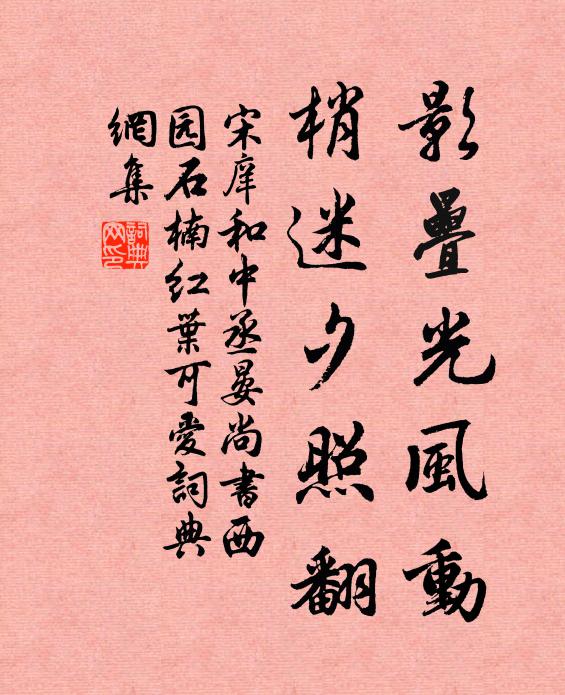 影疊光風動
梢迷夕照翻
宋庠和中丞晏尚書西
园石楠红葉可愛詞典
網集
詞典
网印